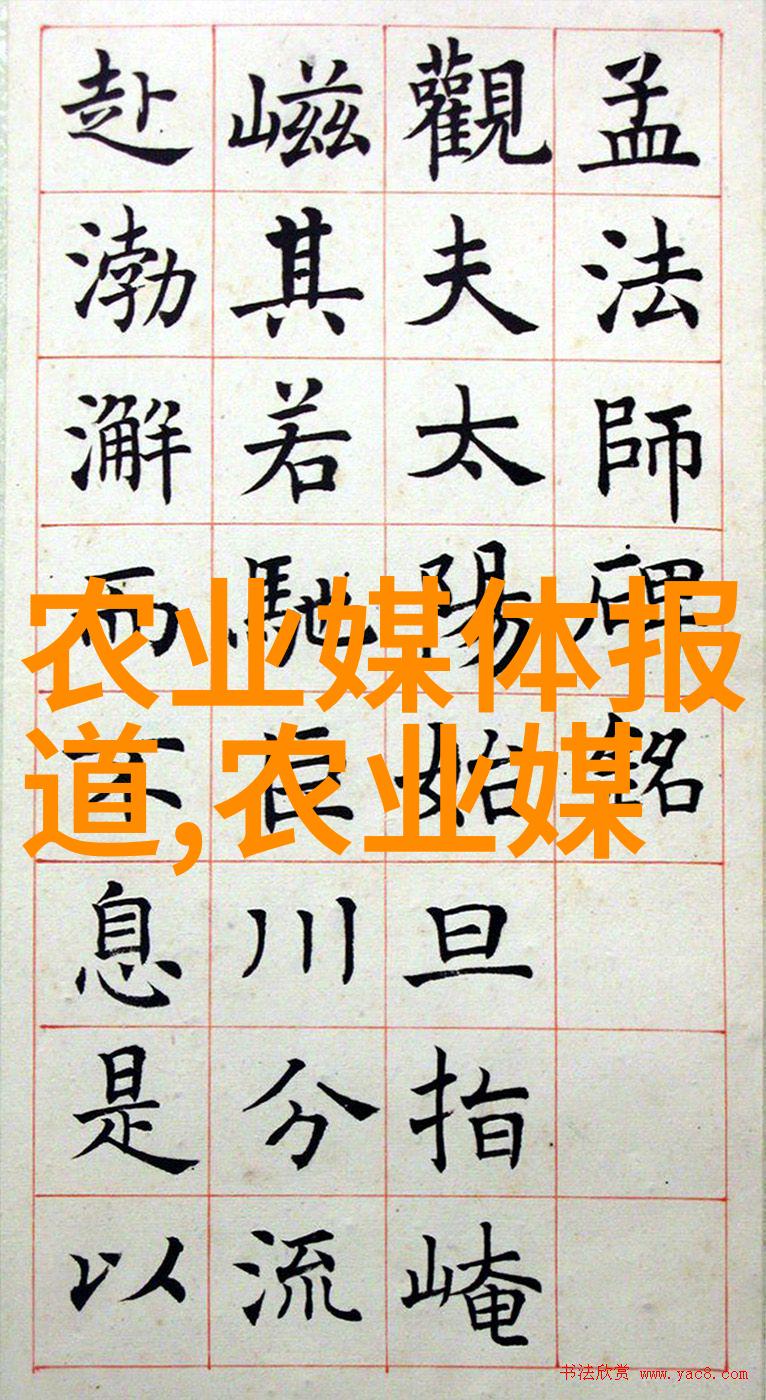 孟法師碑銘
觀夫太陽始旦指崦
嵫其若馳巨川分流
赴渤澥而不息是以
农业媒体报
道,农业媒
书法欣赏 www.yac8.com